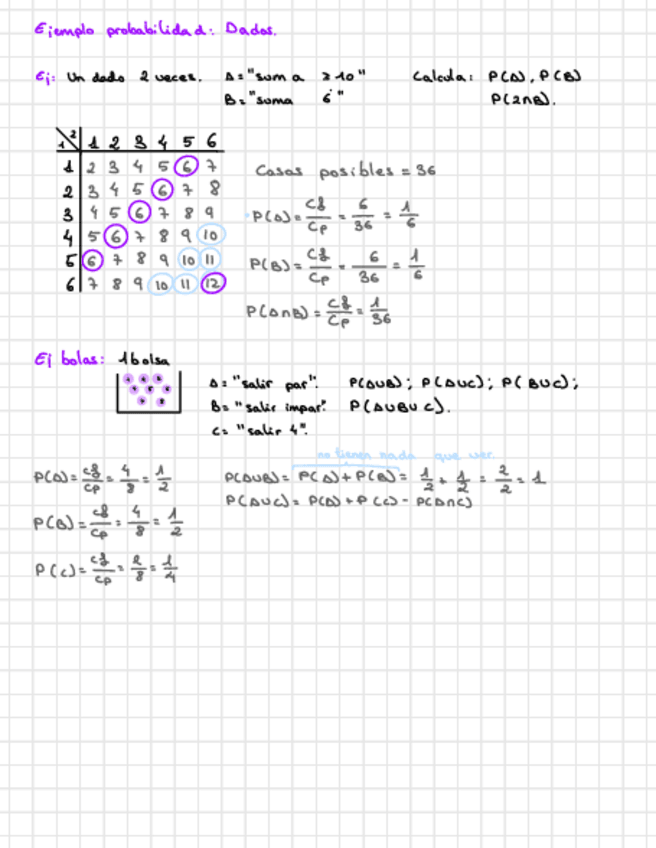 Ejemplo probabilidad: Dados.
Ej: Un dado 2 veces. A="suma ≥10" Calcula: P(A), P(B)
B="suma 6" P(A∩B).
1\2 1 2 3 4 5 6
1 2 3 4 5 6 7
2 3 4 5 6 7 8
3 4 5 6 7 8 9
4 5 6 7 8 9 10
5 6 7 8 9 10 11
6 7 8 9 10 11 12
Casos posibles = 36
P(A)= cf/cp = 6/36 = 1/6
P(B)= cf/cp = 6/36 = 1/6
P(A∩B) = cf/cp = 1/36
Ej bolas: 1 bolsa
A= "salir par". P(A∪B); P(A∪C); P(B∪C);
B= "salir impar". P(A∪B∪C).
C= "salir 4".
no tienen nada que ver.
P(A)= cf/cp = 4/8 = 1/2
P(B)= cf/cp = 4/8 = 1/2
P(C)= cf/cp = 2/8 = 1/4
P(A∪B)= P(A)+P(B)= 1/2 + 1/2 = 2/2 = 1
P(A∪C)= P(A)+P(C)- P(A∩C)